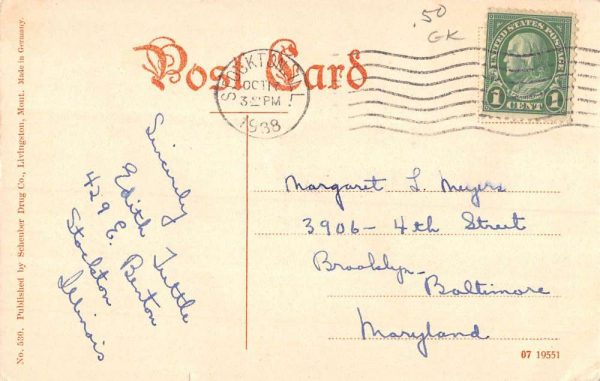 .50
GK
Post Card
STOCKTON, ILL.
OCT 17
3 PM
1938
UNITED STATES POSTAGE
1 CENT 1
Sincerely
Edith Tuttle
429 E. Benton
Stockton
Illinois
Margaret L. Meyers
3906-4th Street
Brooklyn-
Baltimore
Maryland
No. 530. Published by Scheuber Drug Co., Livingston, Mont. Made in Germany.
07 19551